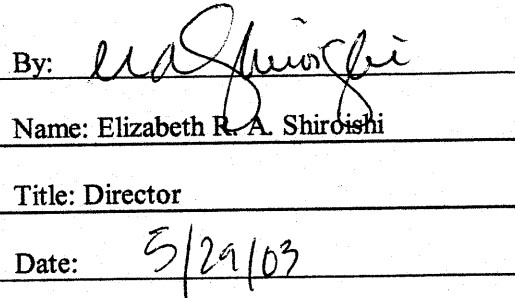 By: ERA Shiroishi
Name: Elizabeth R. A. Shiroishi
Title: Director
Date: 5/29/03